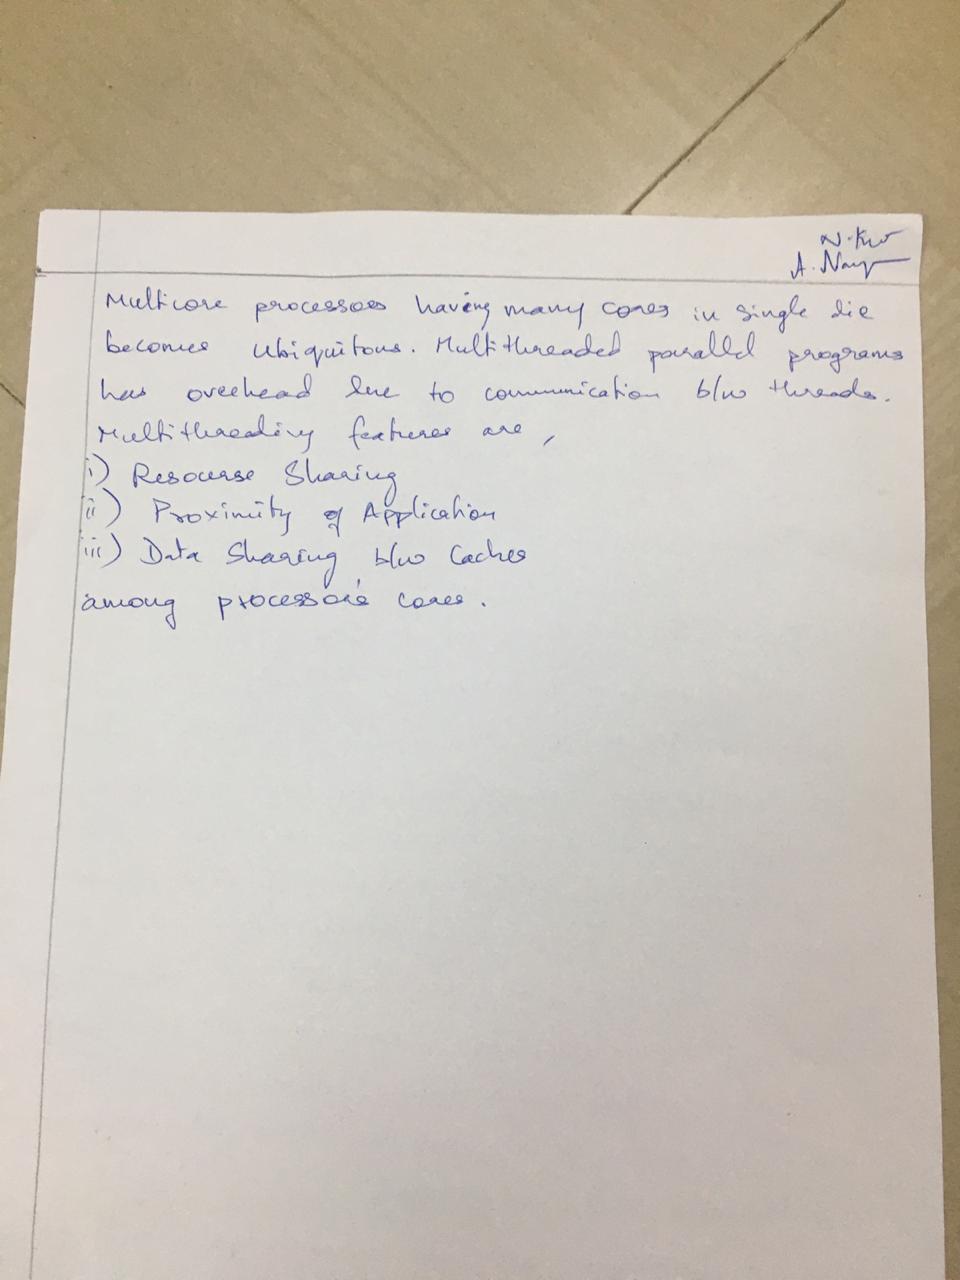 Multicore processors having many cores in single die
becomes ubiquitous. Multithreaded parallel programs
has overhead due to communication b/w threads.
Multithreading features are,
i) Resourse Sharing
ii) Proximity of Application
iii) Data Sharing b/w Caches
among processor's cores.